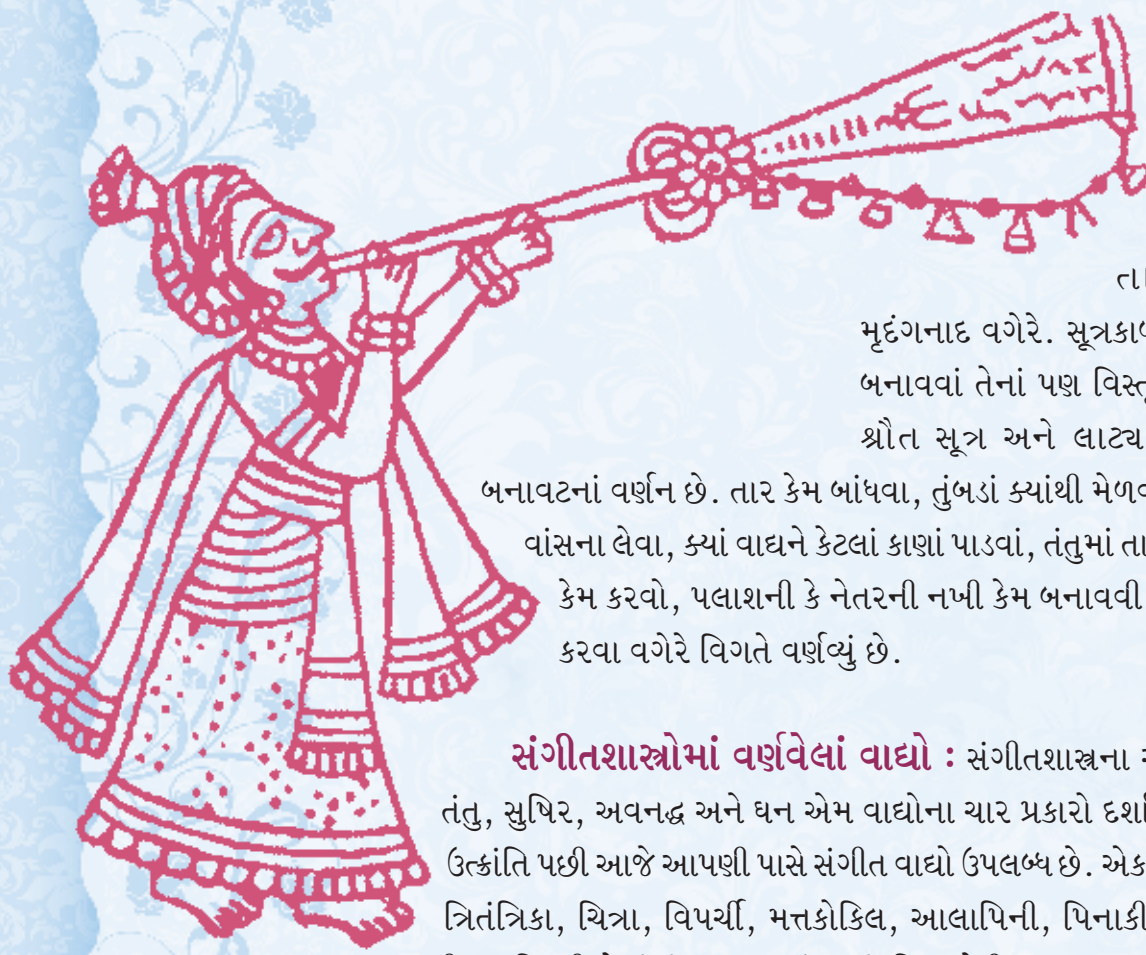 મૃદંગનાદ વગેરે.
બનાવવાં તેનાં પણ
શ્રૌત સૂત્ર અને લાટ્ય
બનાવટનાં વર્ણન છે. તાર કેમ બાંધવા, તુંબડાં ક્યાંથી
વાંસના લેવા, ક્યાં વાદ્યને કેટલાં કાણાં પાડવાં, તંતુમાં
કેમ કરવો, પલાશની કે નેતરની નખી કેમ બનાવવી
કરવા વગેરે વિગતે વર્ણવ્યું છે.
સંગીતશાસ્ત્રોમાં વર્ણવેલાં વાદ્યો : સંગીતશાસ્ત્રના
તંતુ, સુષિર, અવનદ્ધ અને ઘન એમ વાદ્યોના ચાર પ્રકારો
ઉત્ક્રાંતિ પછી આજે આપણી પાસે સંગીત વાદ્યો ઉપલબ્ધ છે. એક
ત્રિતંત્રિકા, ચિત્રા, વિપર્ચી, મત્તકોકિલ, આલાપિની, પિનાકી